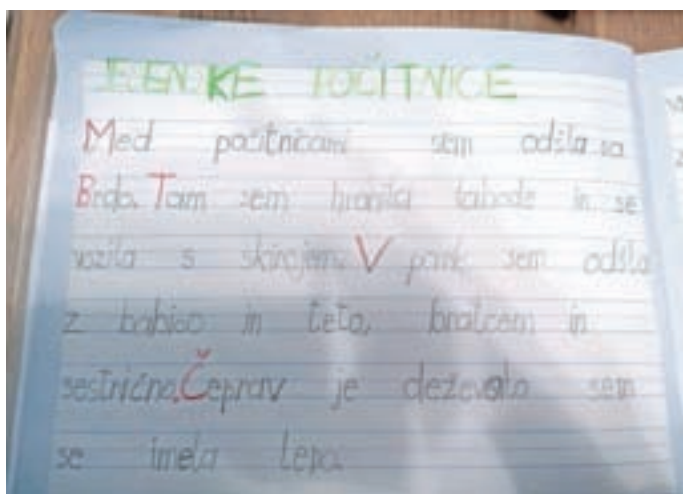 JESENSKE POČITNICE
Med počitnicami sem odšla na
Brdo. Tam sem hranila labode in se
vozila s skirojem. V park sem odšla
z babico in teto, bratcem in
sestrično. Čeprav je deževalo sem
se imela lepo.